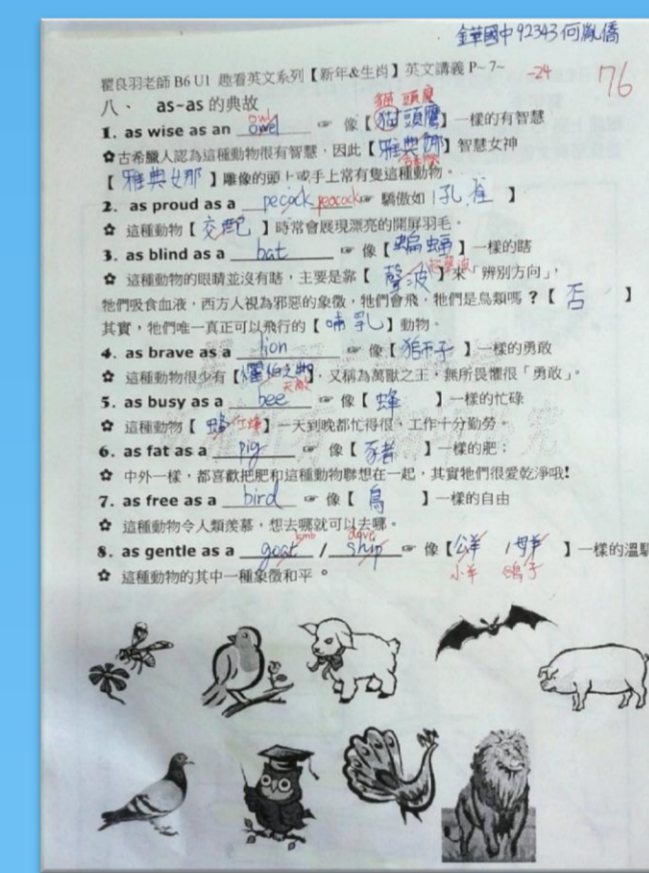 金華國中 92343 何胤僑
瞿良羽老師 B6 U1 趣看英文系列【新年&生肖】英文講義 P~ 7~ -24 76
八、 as~as 的典故
貓 頭鷹
owl
1. as wise as an owel ☞ 像【貓頭鷹】一樣的有智慧
✿古希臘人認為這種動物很有智慧，因此【雅典娜】智慧女神
【雅典娜】雕像的頭上或手上常有隻這種動物。
2. as proud as a pecock peacock ☞ 驕傲如【孔雀】
✿ 這種動物【交配】時常會展現漂亮的開屏羽毛。
3. as blind as a bat ☞ 像【蝙蝠】一樣的瞎
✿ 這種動物的眼睛並沒有瞎，主要是靠【聲波】來「辨別方向」，
牠們吸食血液，西方人視為邪惡的象徵，牠們會飛，牠們是鳥類嗎？【否】
其實，牠們唯一真正可以飛行的【哺乳】動物。
4. as brave as a lion ☞ 像【獅子】一樣的勇敢
✿ 這種動物很少有【懼怕之物】，又稱為萬獸之王，無所畏懼很「勇敢」。
天敵
5. as busy as a bee ☞ 像【蜂】一樣的忙碌
✿ 這種動物【蜂 工蜂】一天到晚都忙得很，工作十分勤勞。
6. as fat as a pig ☞ 像【豬】一樣的肥；
✿ 中外一樣，都喜歡把肥和這種動物聯想在一起，其實牠們很愛乾淨哦!
7. as free as a bird ☞ 像【鳥】一樣的自由
✿ 這種動物令人類羨慕，想去哪就可以去哪。
dove
8. as gentle as a goat / ship ☞ 像【公羊 / 母羊】一樣的溫馴
✿ 這種動物的其中一種象徵和平。 小羊 鴿子